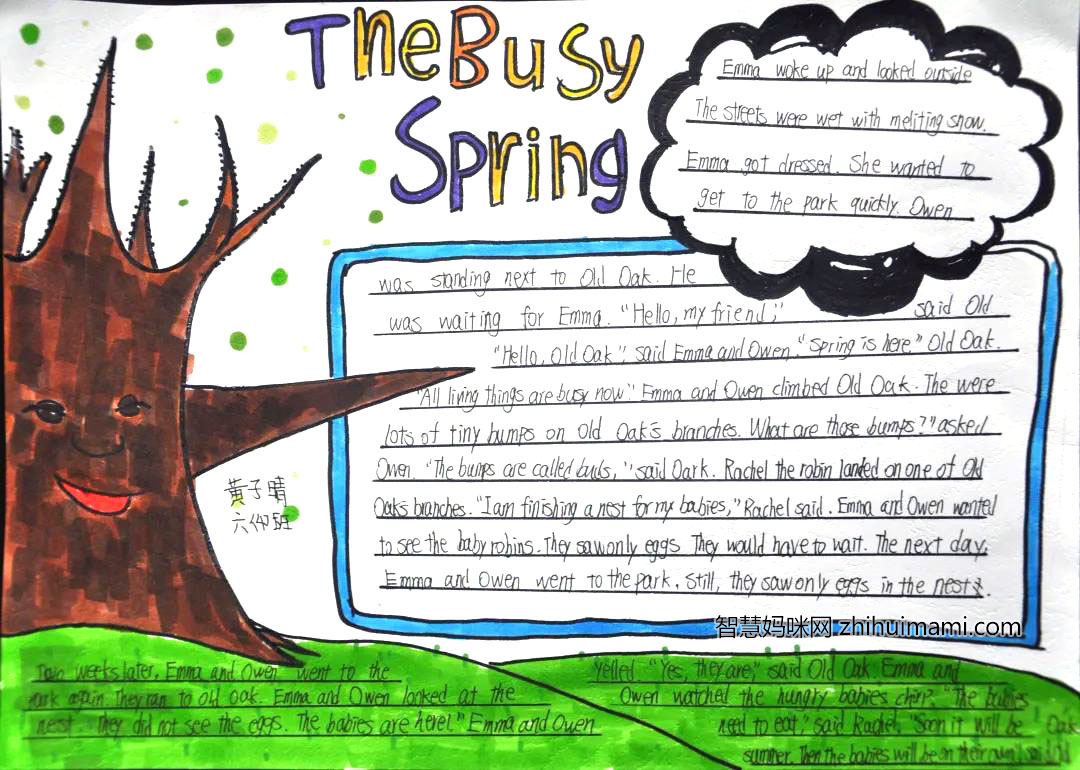 The Busy
Spring
Emma woke up and looked outside
The streets were wet with meliting snow.
Emma got dressed. She wanted to
get to the park quickly. Owen
was standing next to Old Oak. He
was waiting for Emma. "Hello, my friend," said Old
"Hello, Old Oak", said Emma and Owen. "Spring is here." Old Oak.
"All living things are busy now." Emma and Owen climbed Old Oak. The were
lots of tiny bumps on Old Oak's branches. What are those bumps?" asked
Owen. "The bumps are called buds," said Oark. Rachel the robin landed on one of Old
Oak's branches. "I am finishing a nest for my babies," Rachel said. Emma and Owen wanted
to see the baby robins. They saw only eggs They would have to wait. The next day,
Emma and Owen went to the park. Still, they saw only eggs in the nest
黄子晴
六 班
智慧妈咪网 zhihuimami.com
Two weeks later, Emma and Owen went to the
park again. They ran to Old Oak. Emma and Owen looked at the
nest. They did not see the eggs. The babies are here!" Emma and Owen
Yelled. "Yes, they are," said Old Oak Emma and
Owen watched the hungry babies chirp. "The babies
need to eat," said Rachel. "Soon it will be Oak
summer. Then the babies will be on their own! said Old